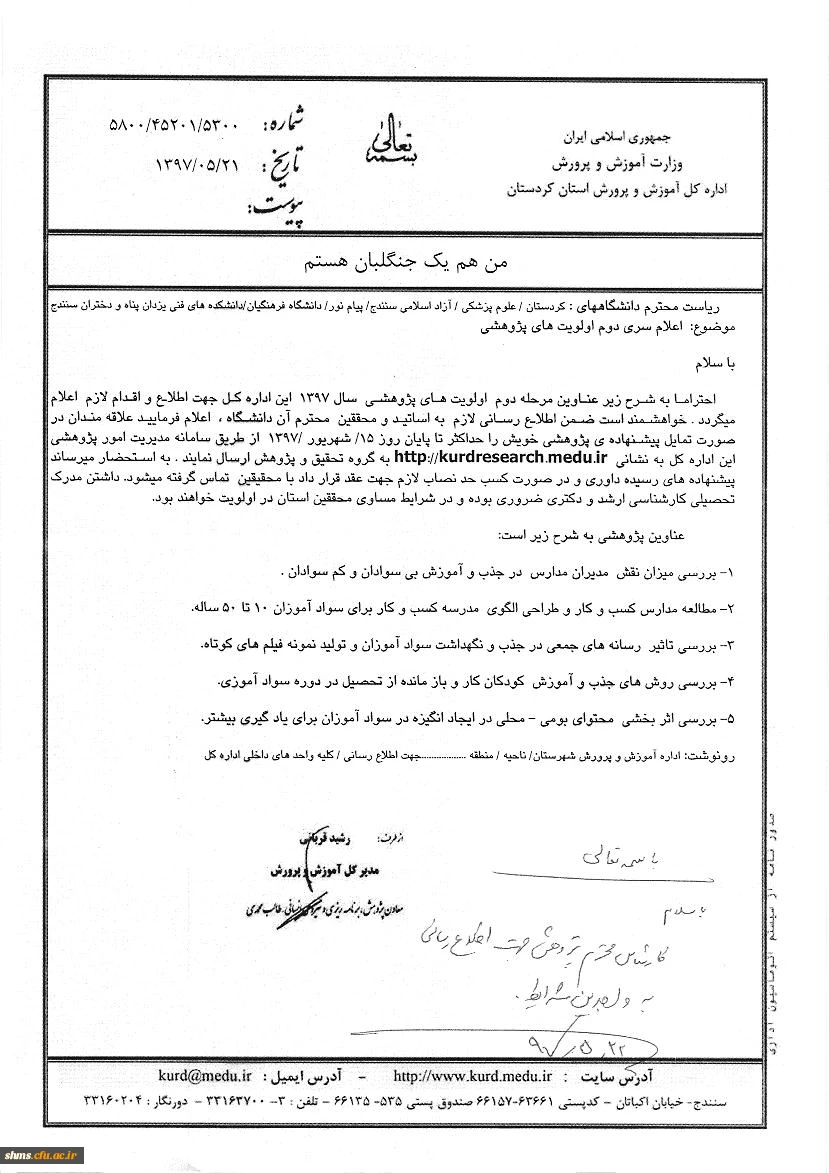 جمهوری اسلامی ایران
وزارت آموزش و پرورش
اداره کل آموزش و پرورش استان کردستان
بسمه تعالی
شماره: ۵۸۰۰/۴۵۲۰۱/۵۳۰۰
تاریخ: ۱۳۹۷/۰۵/۲۱
پیوست:
من هم یک جنگلبان هستم
ریاست محترم دانشگاههای : کردستان / علوم پزشکی / آزاد اسلامی سنندج/ پیام نور/ دانشگاه فرهنگیان/دانشکده های فنی یزدان پناه و دختران سنندج
موضوع: اعلام سری دوم اولویت های پژوهشی
با سلام
احتراما به شرح زیر عناوین مرحله دوم اولویت های پژوهشی سال ۱۳۹۷ این اداره کل جهت اطلاع و اقدام لازم اعلام
میگردد . خواهشمند است ضمن اطلاع رسانی لازم به اساتید و محققین محترم آن دانشگاه ، اعلام فرمایید علاقه مندان در
صورت تمایل پیشنهاده ی پژوهشی خویش را حداکثر تا پایان روز ۱۵/ شهریور /۱۳۹۷ از طریق سامانه مدیریت امور پژوهشی
این اداره کل به نشانی http://kurdresearch.medu.ir به گروه تحقیق و پژوهش ارسال نمایند . به استحضار میرساند
پیشنهاده های رسیده داوری و در صورت کسب حد نصاب لازم جهت عقد قرار داد با محقیقین تماس گرفته میشود. داشتن مدرک
تحصیلی کارشناسی ارشد و دکتری ضروری بوده و در شرایط مساوی محققین استان در اولویت خواهند بود.
عناوین پژوهشی به شرح زیر است:
۱- بررسی میزان نقش مدیران مدارس در جذب و آموزش بی سوادان و کم سوادان .
۲- مطالعه مدارس کسب و کار و طراحی الگوی مدرسه کسب و کار برای سواد آموزان ۱۰ تا ۵۰ ساله.
۳- بررسی تاثیر رسانه های جمعی در جذب و نگهداشت سواد آموزان و تولید نمونه فیلم های کوتاه.
۴- بررسی روش های جذب و آموزش کودکان کار و باز مانده از تحصیل در دوره سواد آموزی.
۵- بررسی اثر بخشی محتوای بومی – محلی در ایجاد انگیزه در سواد آموزان برای یاد گیری بیشتر.
رونوشت: اداره آموزش و پرورش شهرستان/ ناحیه / منطقه ..................جهت اطلاع رسانی / کلیه واحد های داخلی اداره کل
از طرف: رشید قربانی
مدیر کل آموزش و پرورش
معاون پژوهش، برنامه ریزی و نیروی انسانی، طالب محمدی
باسمه تعالی
با سلام
کارشناس محترم پژوهشی جهت اطلاع رسانی
به واجدین شرایط.
۹۷/۵/۲۲
صدور نامه از سیستم اتوماسیون اداری
آدرس سایت : http://www.kurd.medu.ir - آدرس ایمیل : kurd@medu.ir
سنندج- خیابان اکباتان – کدپستی ۶۳۶۶۱-۶۶۱۵۷ صندوق پستی ۵۳۵- ۶۶۱۳۵ – تلفن : ۳- ۳۳۱۶۳۷۰۰ – دورنگار : ۳۳۱۶۰۲۰۴
shms.cfu.ac.ir